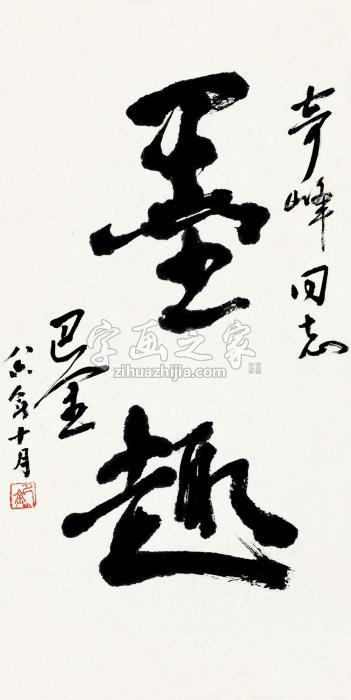 奇峰同志
墨趣
巴金
八六年十月
字画之家
zihuazhijia.com